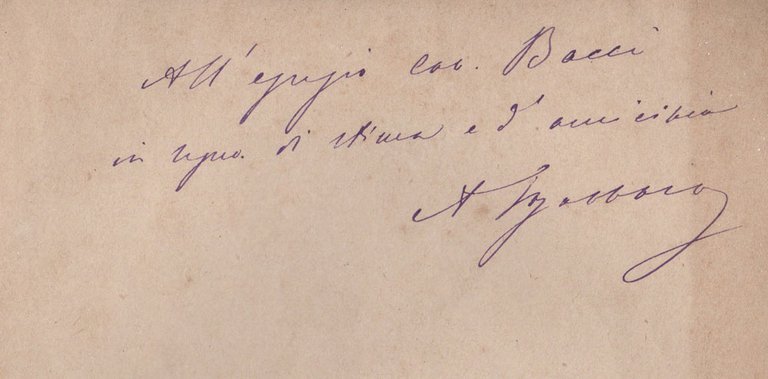 All'egregio Cav. Bacci
in segno di stima e d'amicizia
A